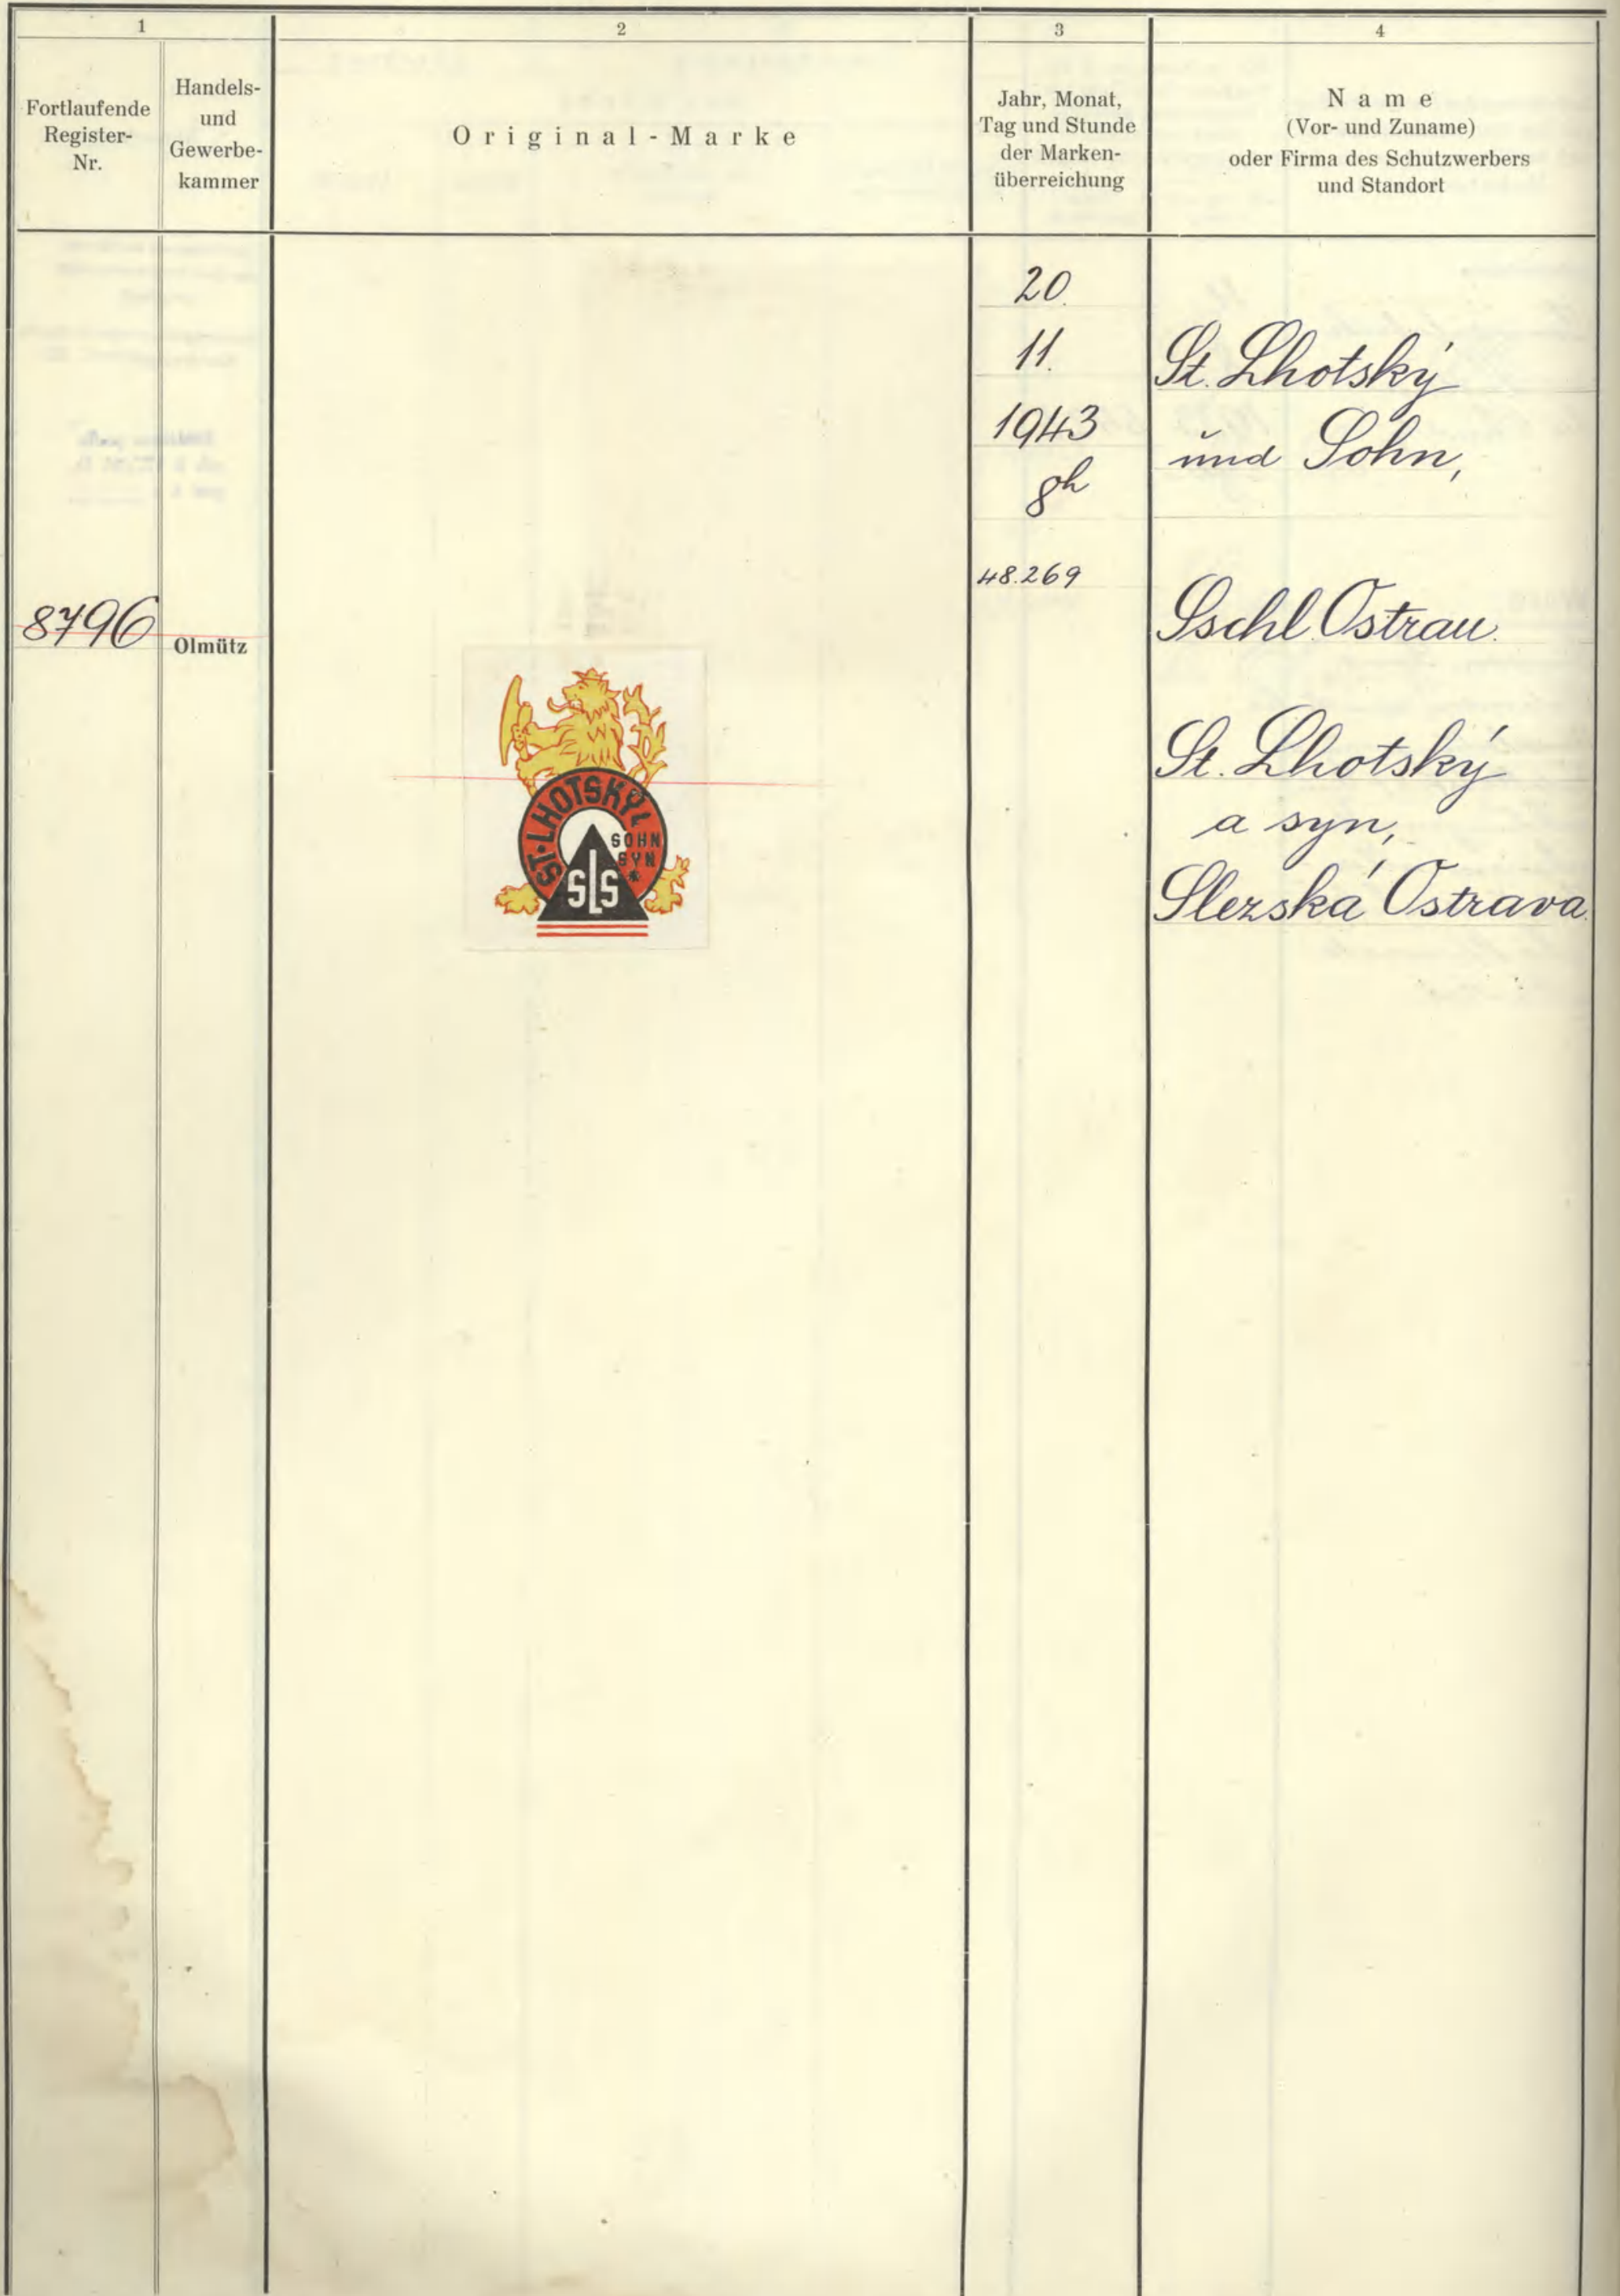 1
2
3
4
Fortlaufende
Register-
Nr.
Handels-
und
Gewerbe-
kammer
Original-Marke
Jahr, Monat,
Tag und Stunde
der Marken-
überreichung
Name
(Vor- und Zuname)
oder Firma des Schutzwerbers
und Standort
8796
Olmütz
ST. LHOTSKÝ
SOHN
SYN
SLS
20.
11.
1943
8h
48.269
St. Lhotský
und Sohn,
Sschl. Ostrau.
St. Lhotský
a syn,
Slezská Ostrava.